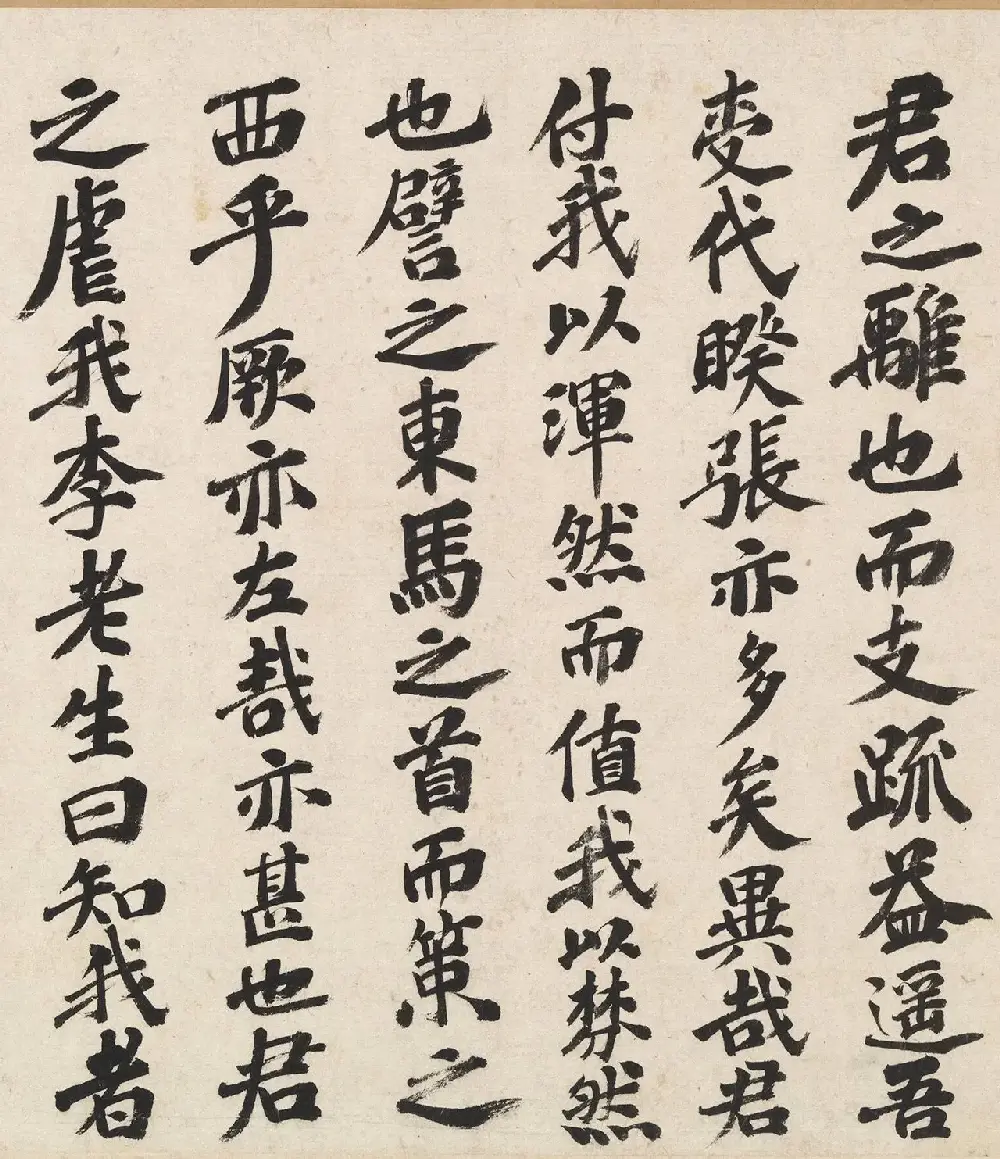 君之離也而支疏益遥吾
变代睽張亦多矣異哉君
付我以渾然而值我以棼然
也譬之東馬之首而策之
西乎厥亦左哉亦甚也君
之虐我李老生曰知我者